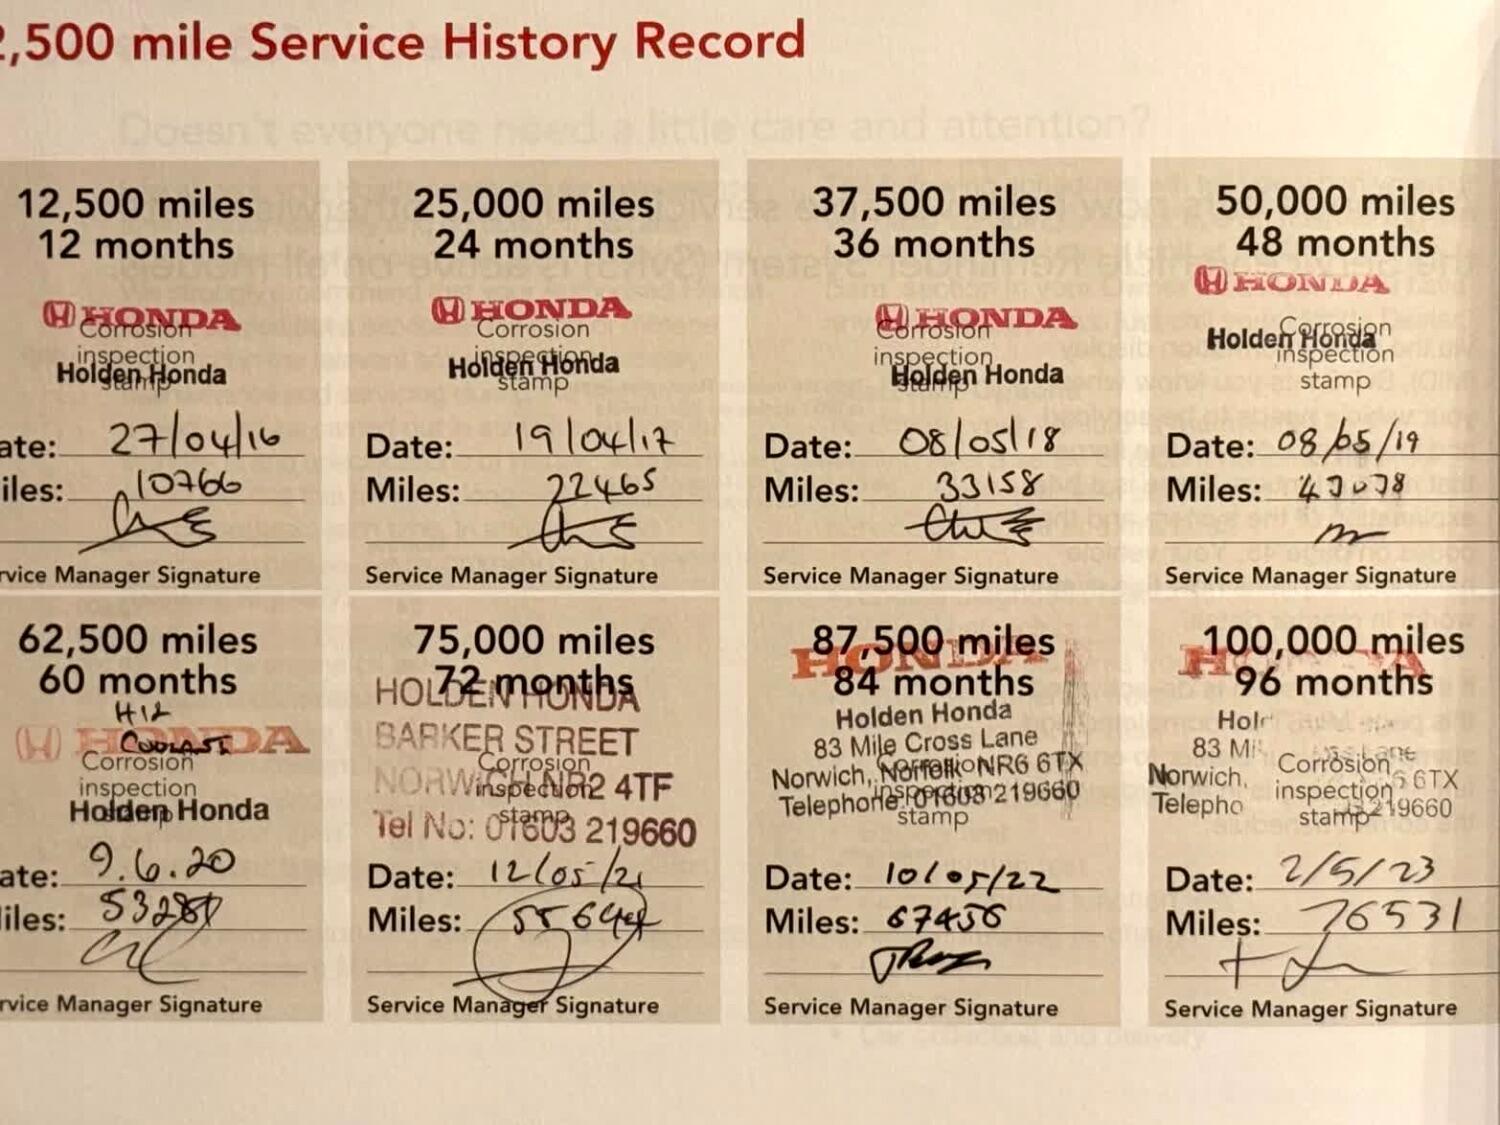 2,500 mile Service History Record
12,500 miles
12 months
HONDA
Corrosion
inspection
stamp
Holden Honda
ate: 27/04/16
iles: 10766
rvice Manager Signature
25,000 miles
24 months
HONDA
Corrosion
inspection
stamp
Holden Honda
Date: 19/04/17
Miles: 22465
Service Manager Signature
37,500 miles
36 months
HONDA
Corrosion
inspection
stamp
Holden Honda
Date: 08/05/18
Miles: 33158
Service Manager Signature
50,000 miles
48 months
HONDA
Corrosion
inspection
stamp
Holden Honda
Date: 08/05/19
Miles:
Service Manager Signature
62,500 miles
60 months
HONDA
Corrosion
inspection
stamp
Holden Honda
ate: 9.6.20
iles:
rvice Manager Signature
75,000 miles
72 months
HOLDEN HONDA
BARKER STREET
NORWICH NR2 4TF
Tel No: 01603 219660
Corrosion
inspection
stamp
Date: 12/05/21
Miles:
Service Manager Signature
87,500 miles
84 months
HONDA
Holden Honda
83 Mile Cross Lane
Norwich, Norfolk NR6 6TX
Telephone: 01603 219660
Corrosion
inspection
stamp
Date: 10/05/22
Miles: 67456
Service Manager Signature
100,000 miles
96 months
Norwich,
6TX
219660
Corrosion
inspection
stamp
Date: 2/5/23
Miles: 76531
Service Manager Signature